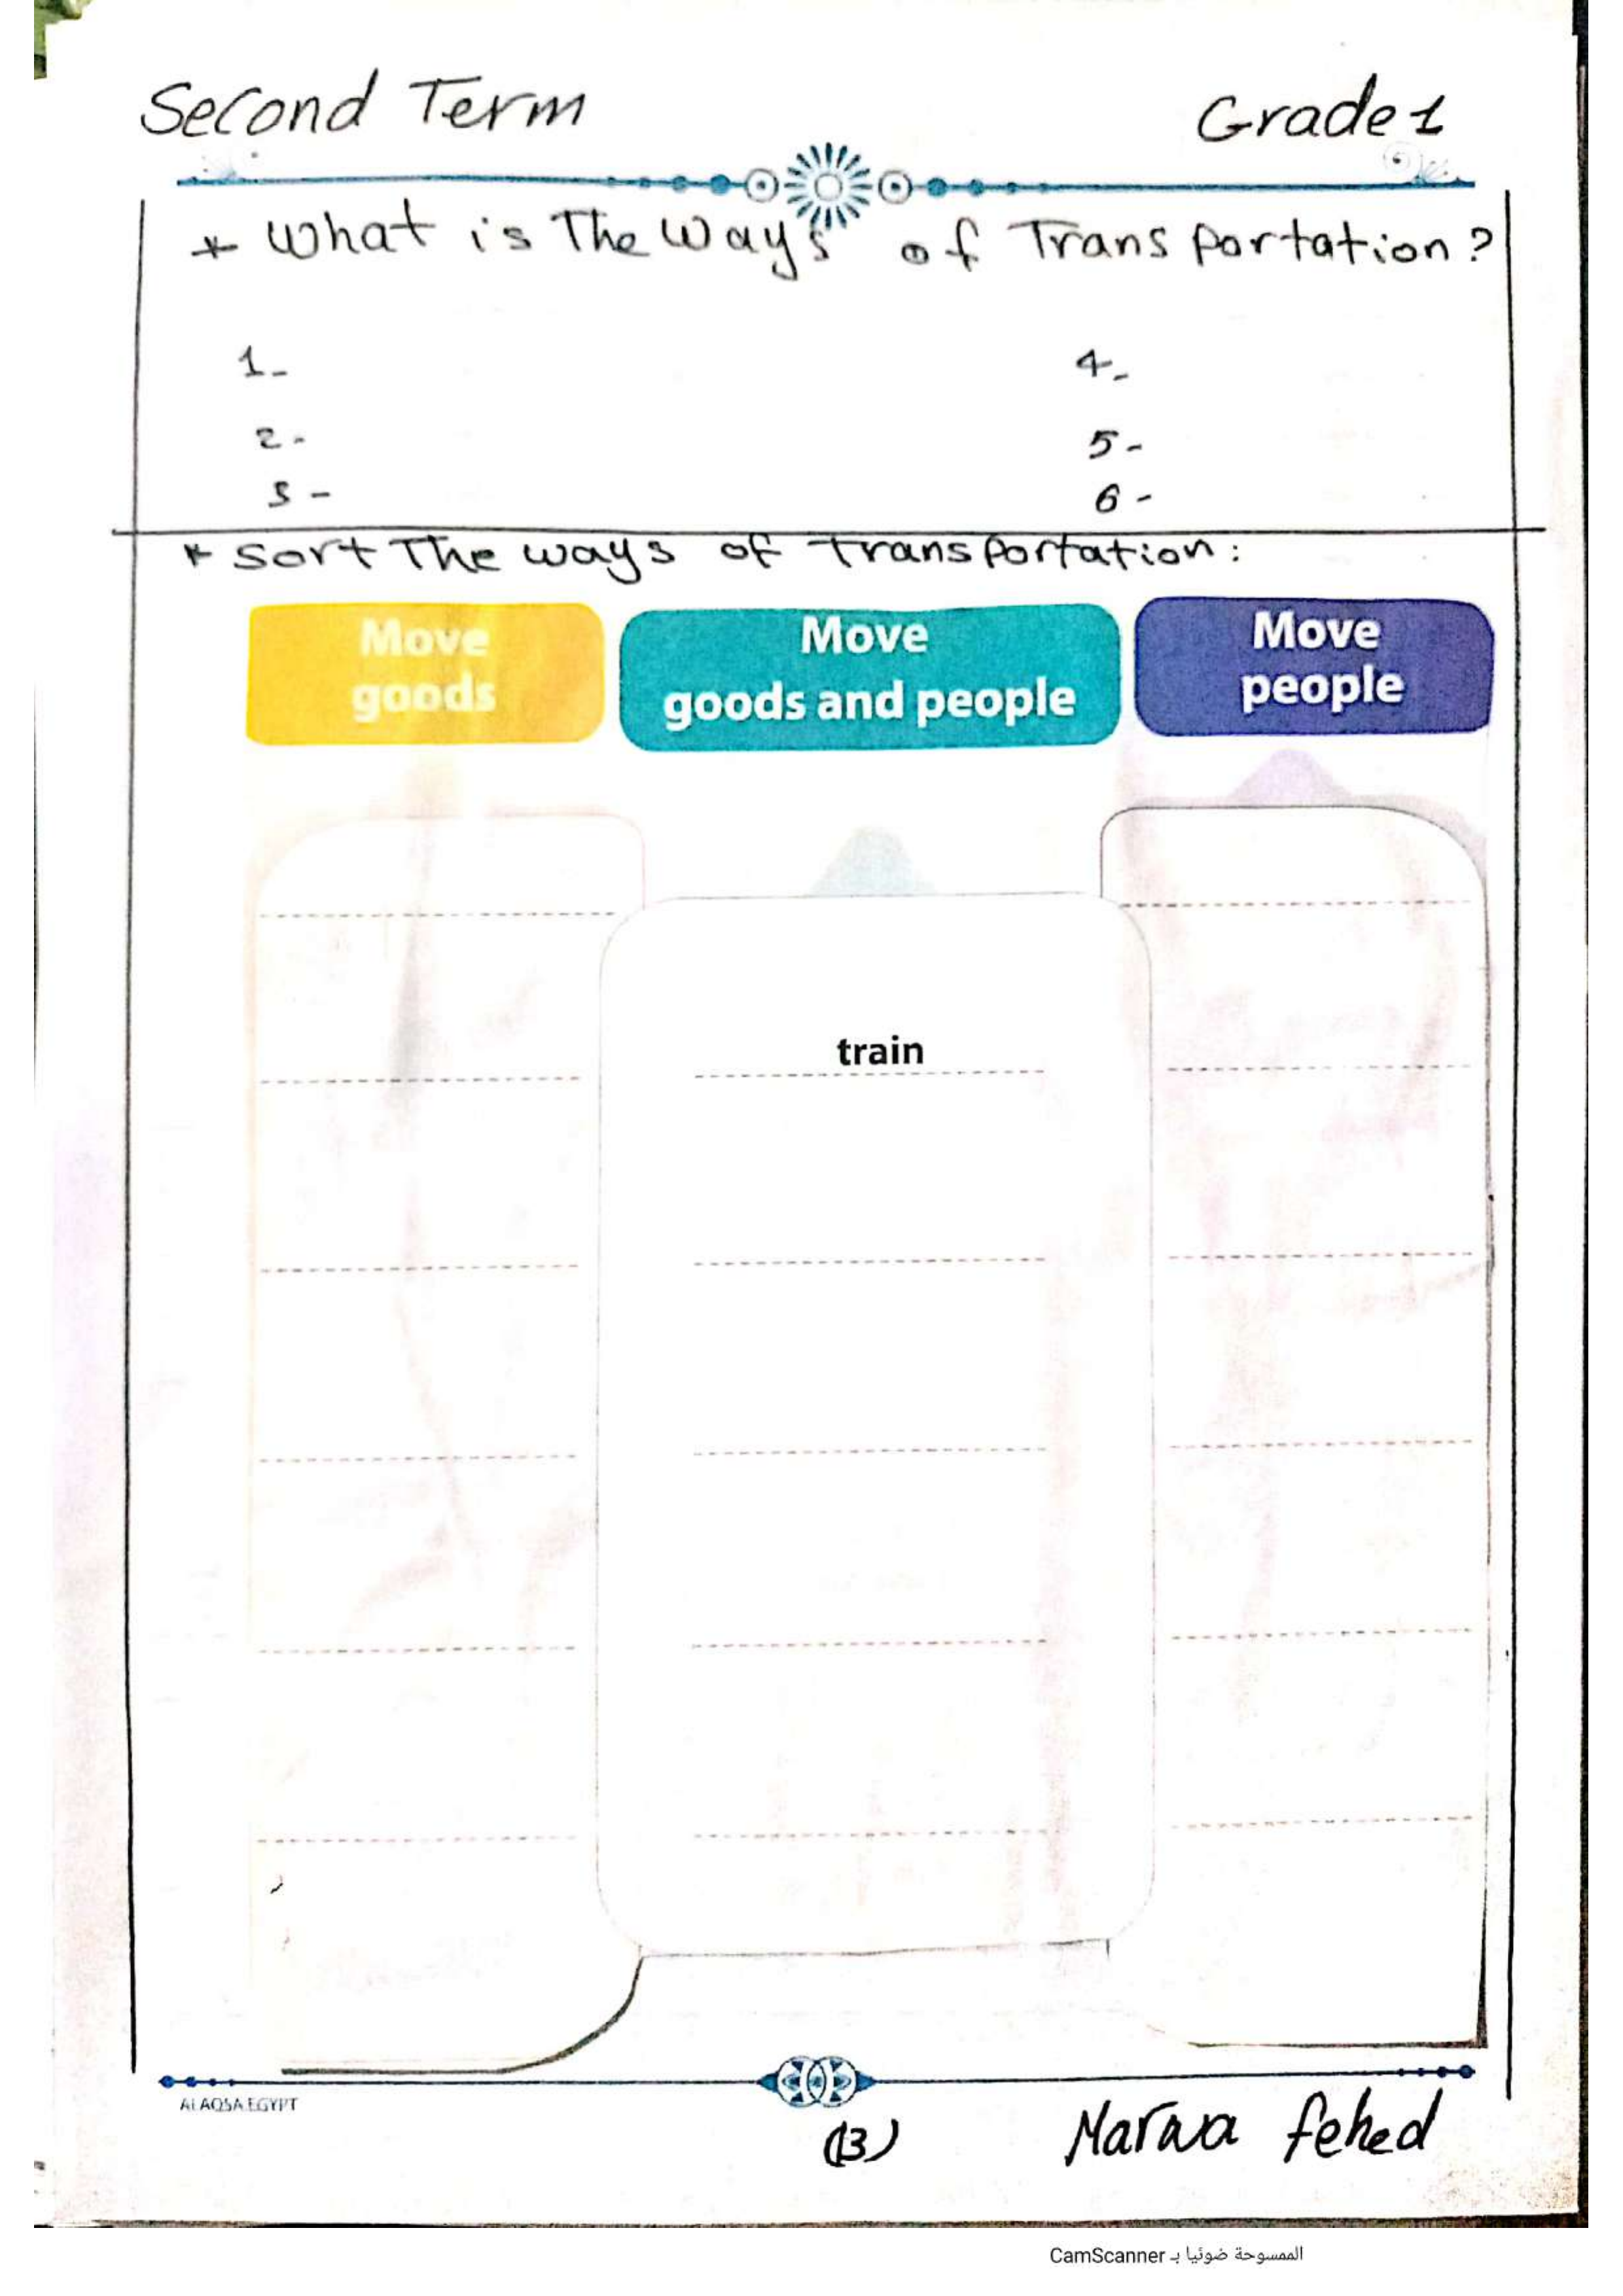 Second Term
Grade 1
* What is The Ways of Transportation?
1-
4-
2-
5-
3-
6-
* Sort The ways of Transportation:
Move
goods
Move
goods and people
Move
people
train
ALAQSA EGYPT
(13)
Marwa fehed
الممسوحة ضوئيا بـ CamScanner